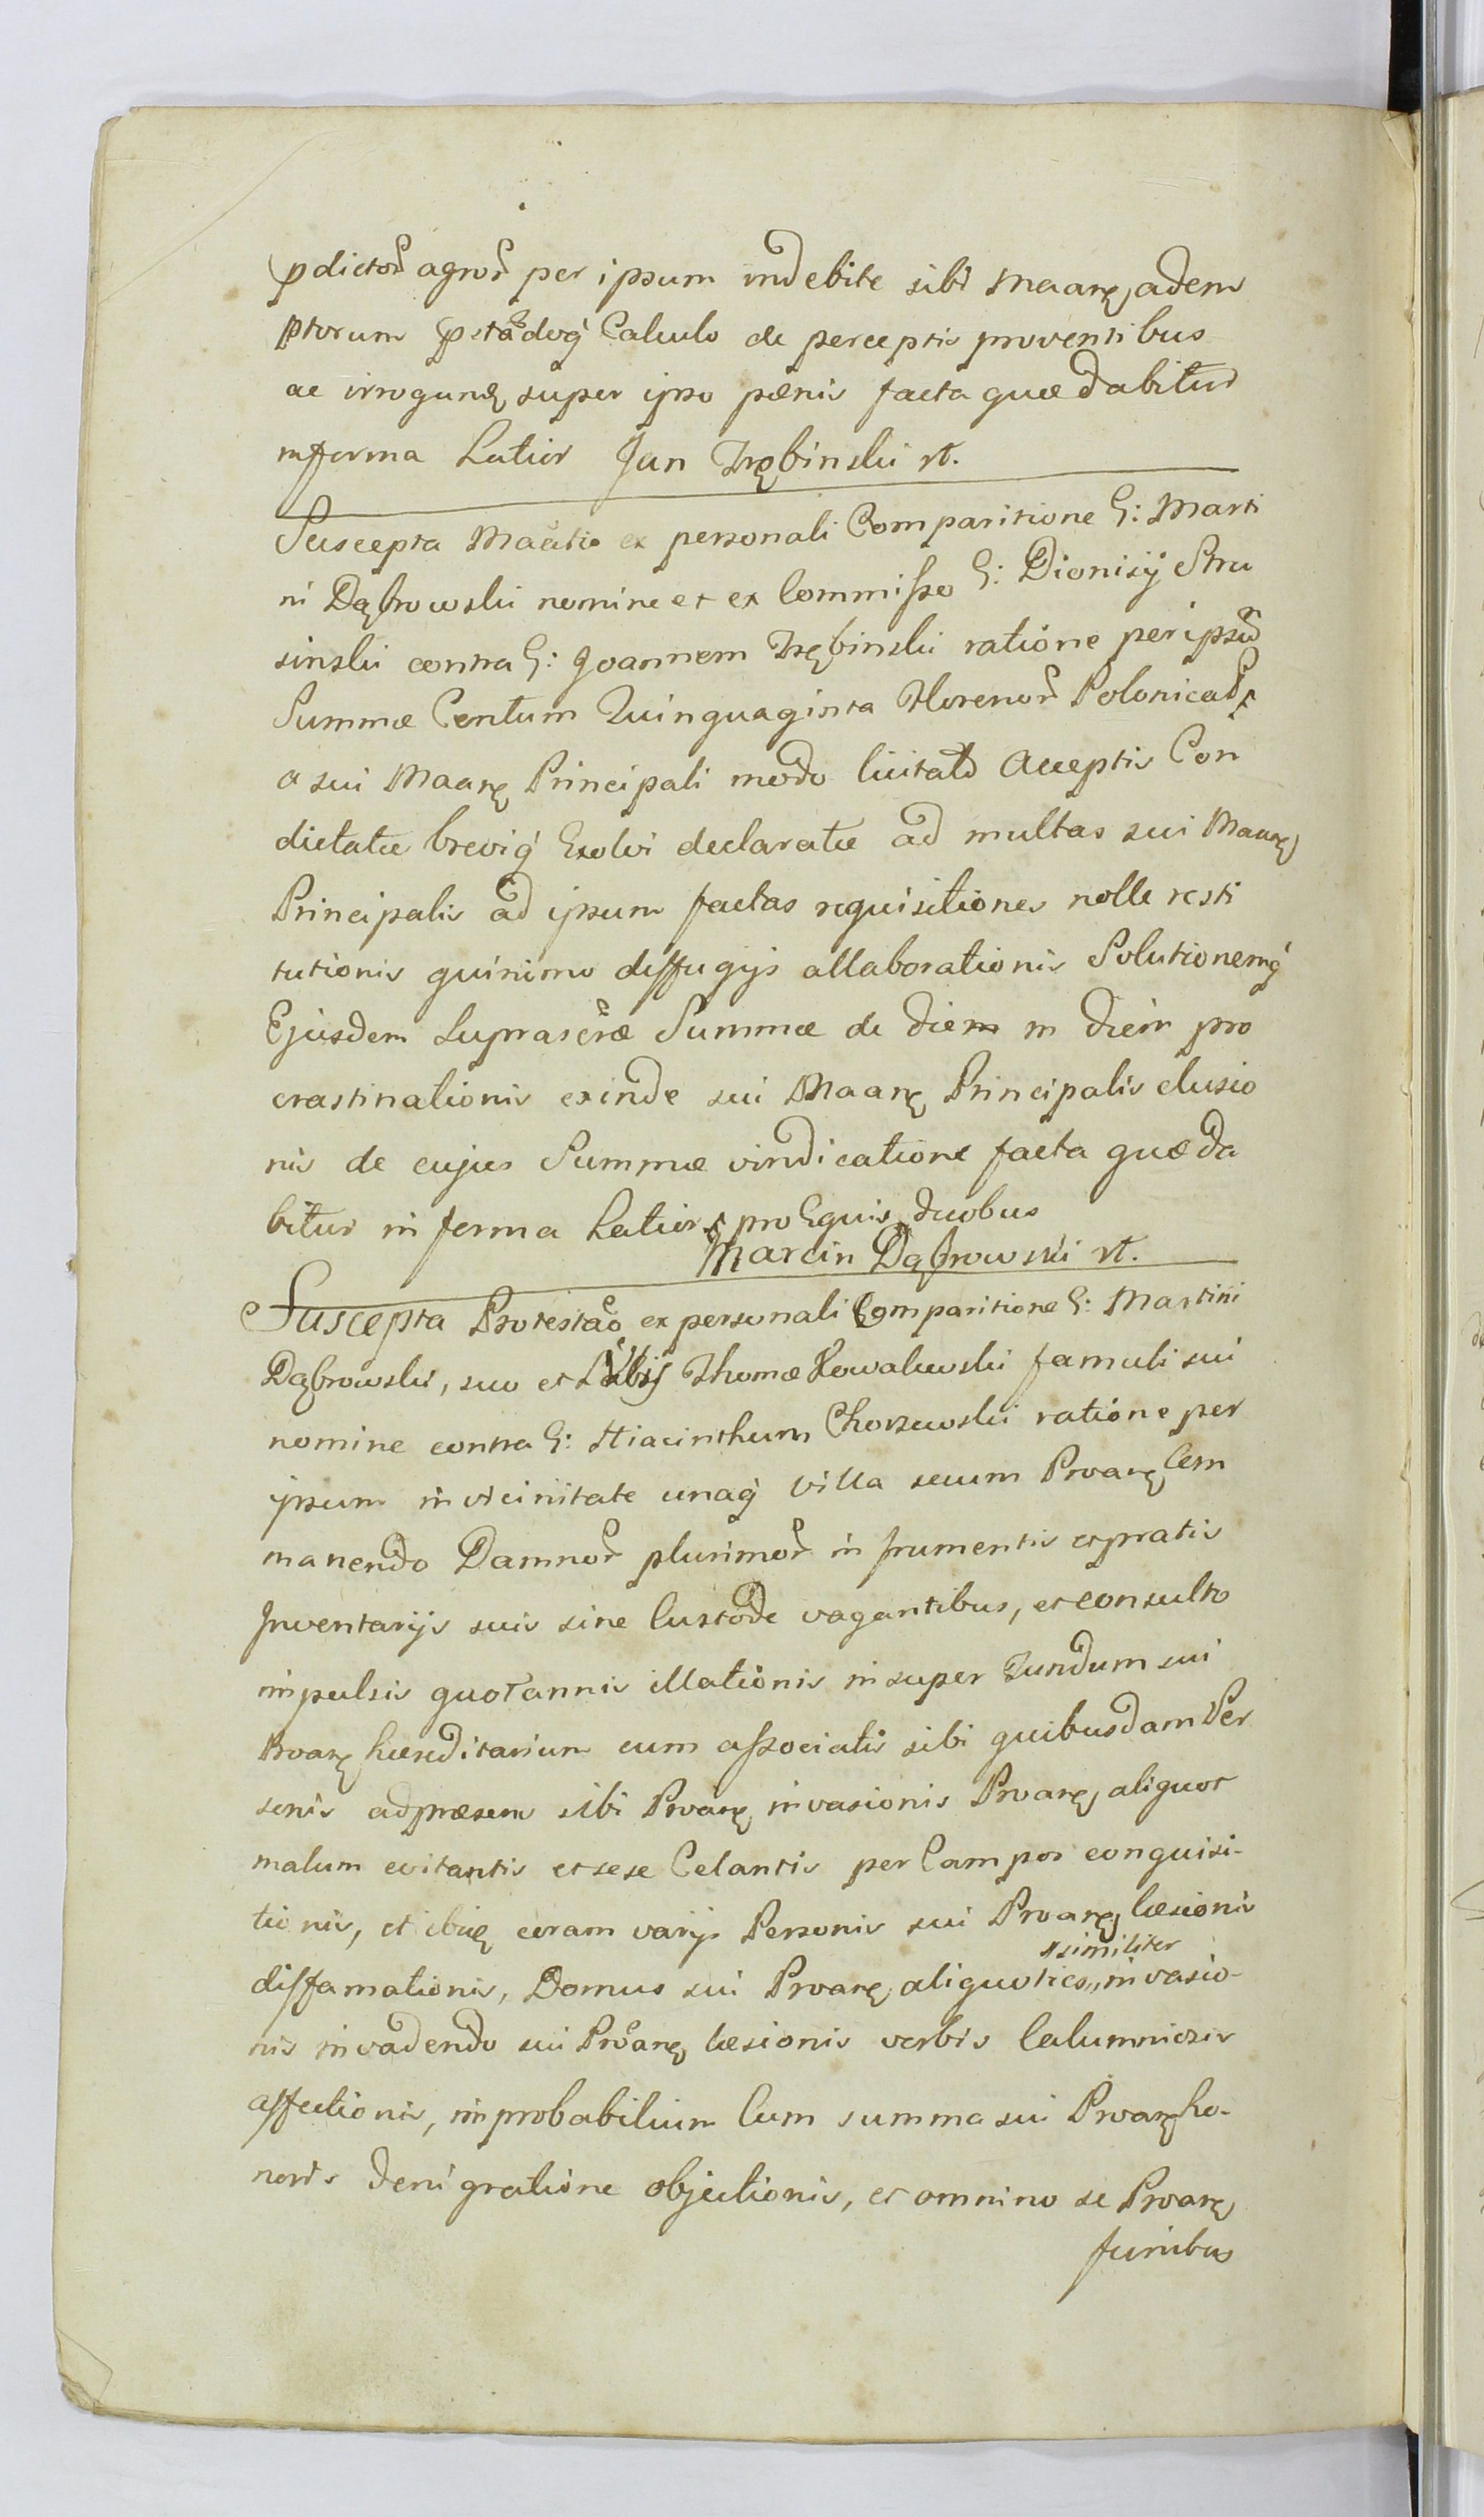 pdictor agror per ipsum indebite sibi Maarę, adem
ptorum Calculo de perceptis proventibus
ac irrogunę super ipso pænis facta quæ dabitur
in forma Latior Jan Trębinski rt.
Suscepta Maãtio ex personali Comparitione G: Marti
ni Dąbrowski nomine et ex Commisso G: Dionisij Stru
sinski contra G: Joannem Trębinski ratione per ipsũ
Summæ Centum Quinquaginta Florenor Polonical
a sui Maarę Principali modo licitato acceptis Con
dictatæ breviq́ Exolvi declaratæ ad multas sui Maarę
Principalis ad ipsum factas requisitiones nolle resti
tutionis quinimo diffugijs allaborationis Solutionemq́
Ejusdem Suprascræ Summæ de diem in diem pro
crastinationis exinde sui Maarę Principalis elusio
nis de cujus Summæ vindicatione facta quæ da
bitur in forma Latior pro Equis duobus
Marcin Dąbrowski rt.
Suscepta Protestao ex personali Comparitione G: Martini
Dąbrowski, suo et Thomæ Kowalewski famuli sui
nomine contra G: Hiacinthum Chorzewski ratione per
ipsum in vicinitate unaq́ villa secum Proarę Com
manendo Damnor plurimor in frumentis et pratis
Inventarijs suis sine Custode vagantibus, et consulto
impulsis quotannis illationis insuper Fundum sui
Proarę hæreditarium cum associatis sibi quibusdam Per
sonis ad præsens sibi Proarę invasionis Proarę, aliquot
malum evitantis et sese Celantis per Campos conquisi-
tionis, et ibię coram varijs Personis sui Proarę, læsionis
similiter
diffamationis, Domus sui Proarę, aliquoties,, invasio-
nis invadendo sui Proarę læsionis verbis Calumniosis
affectionis, improbabilium Cum summa sui Proarę ho-
noris denigratione objectionis, et omnino se Proarę
funibus